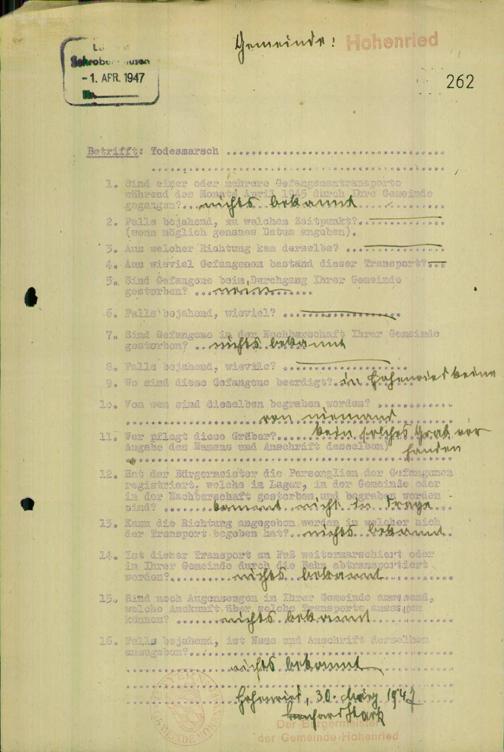 Gemeinde: Hohenried
Schrobenhausen
- 1. APR. 1947
No.
262
Betrifft: Todesmarsch
1. Sind einer oder mehrere Gefangenentransporte
während des Monats April 1945 durch Ihre Gemeinde
gegangen? nichts bekannt
2. Falls bejahend, zu welchem Zeitpunkt?
(wenn möglich genaues Datum angeben).
3. Aus welcher Richtung kam derselbe?
4. Aus wieviel Gefangenen bestand dieser Transport?
5. Sind Gefangene beim Durchgang Ihrer Gemeinde
gestorben? nein
6. Falls bejahend, wieviel?
7. Sind Gefangene in der Nachbarschaft Ihrer Gemeinde
gestorben? nichts bekannt
8. Falls bejahend, wieviele?
9. Wo sind diese Gefangene beerdigt? in Hohenried keine
10. Von wem sind dieselben begraben worden?
von niemand
11. Wer pflegt diese Gräber? kein solches Grab vor
Angabe des Namens und Anschrift desselben) handen
12. Hat der Bürgermeister die Personalien der Gefangenen
registriert, welche im Lager, in der Gemeinde oder
in der Nachbarschaft gestorben und begraben worden
sind? kommt nicht in Frage
13. Kann die Richtung angegeben werden in welcher sich
der Transport begeben hat? nichts bekannt
14. Ist dieser Transport zu Fuß weitermarschiert oder
in Ihrer Gemeinde durch die Bahn abtransportiert
worden? nichts bekannt
15. Sind noch Augenzeugen in Ihrer Gemeinde anwesend,
welche Auskunft über solche Transporte aussagen
können? nichts bekannt
16. Falls bejahend, ist Name und Anschrift derselben
anzugeben?
nichts bekannt
Hohenried, 30. März 1947
Stark
Der Bürgermeister
der Gemeinde Hohenried